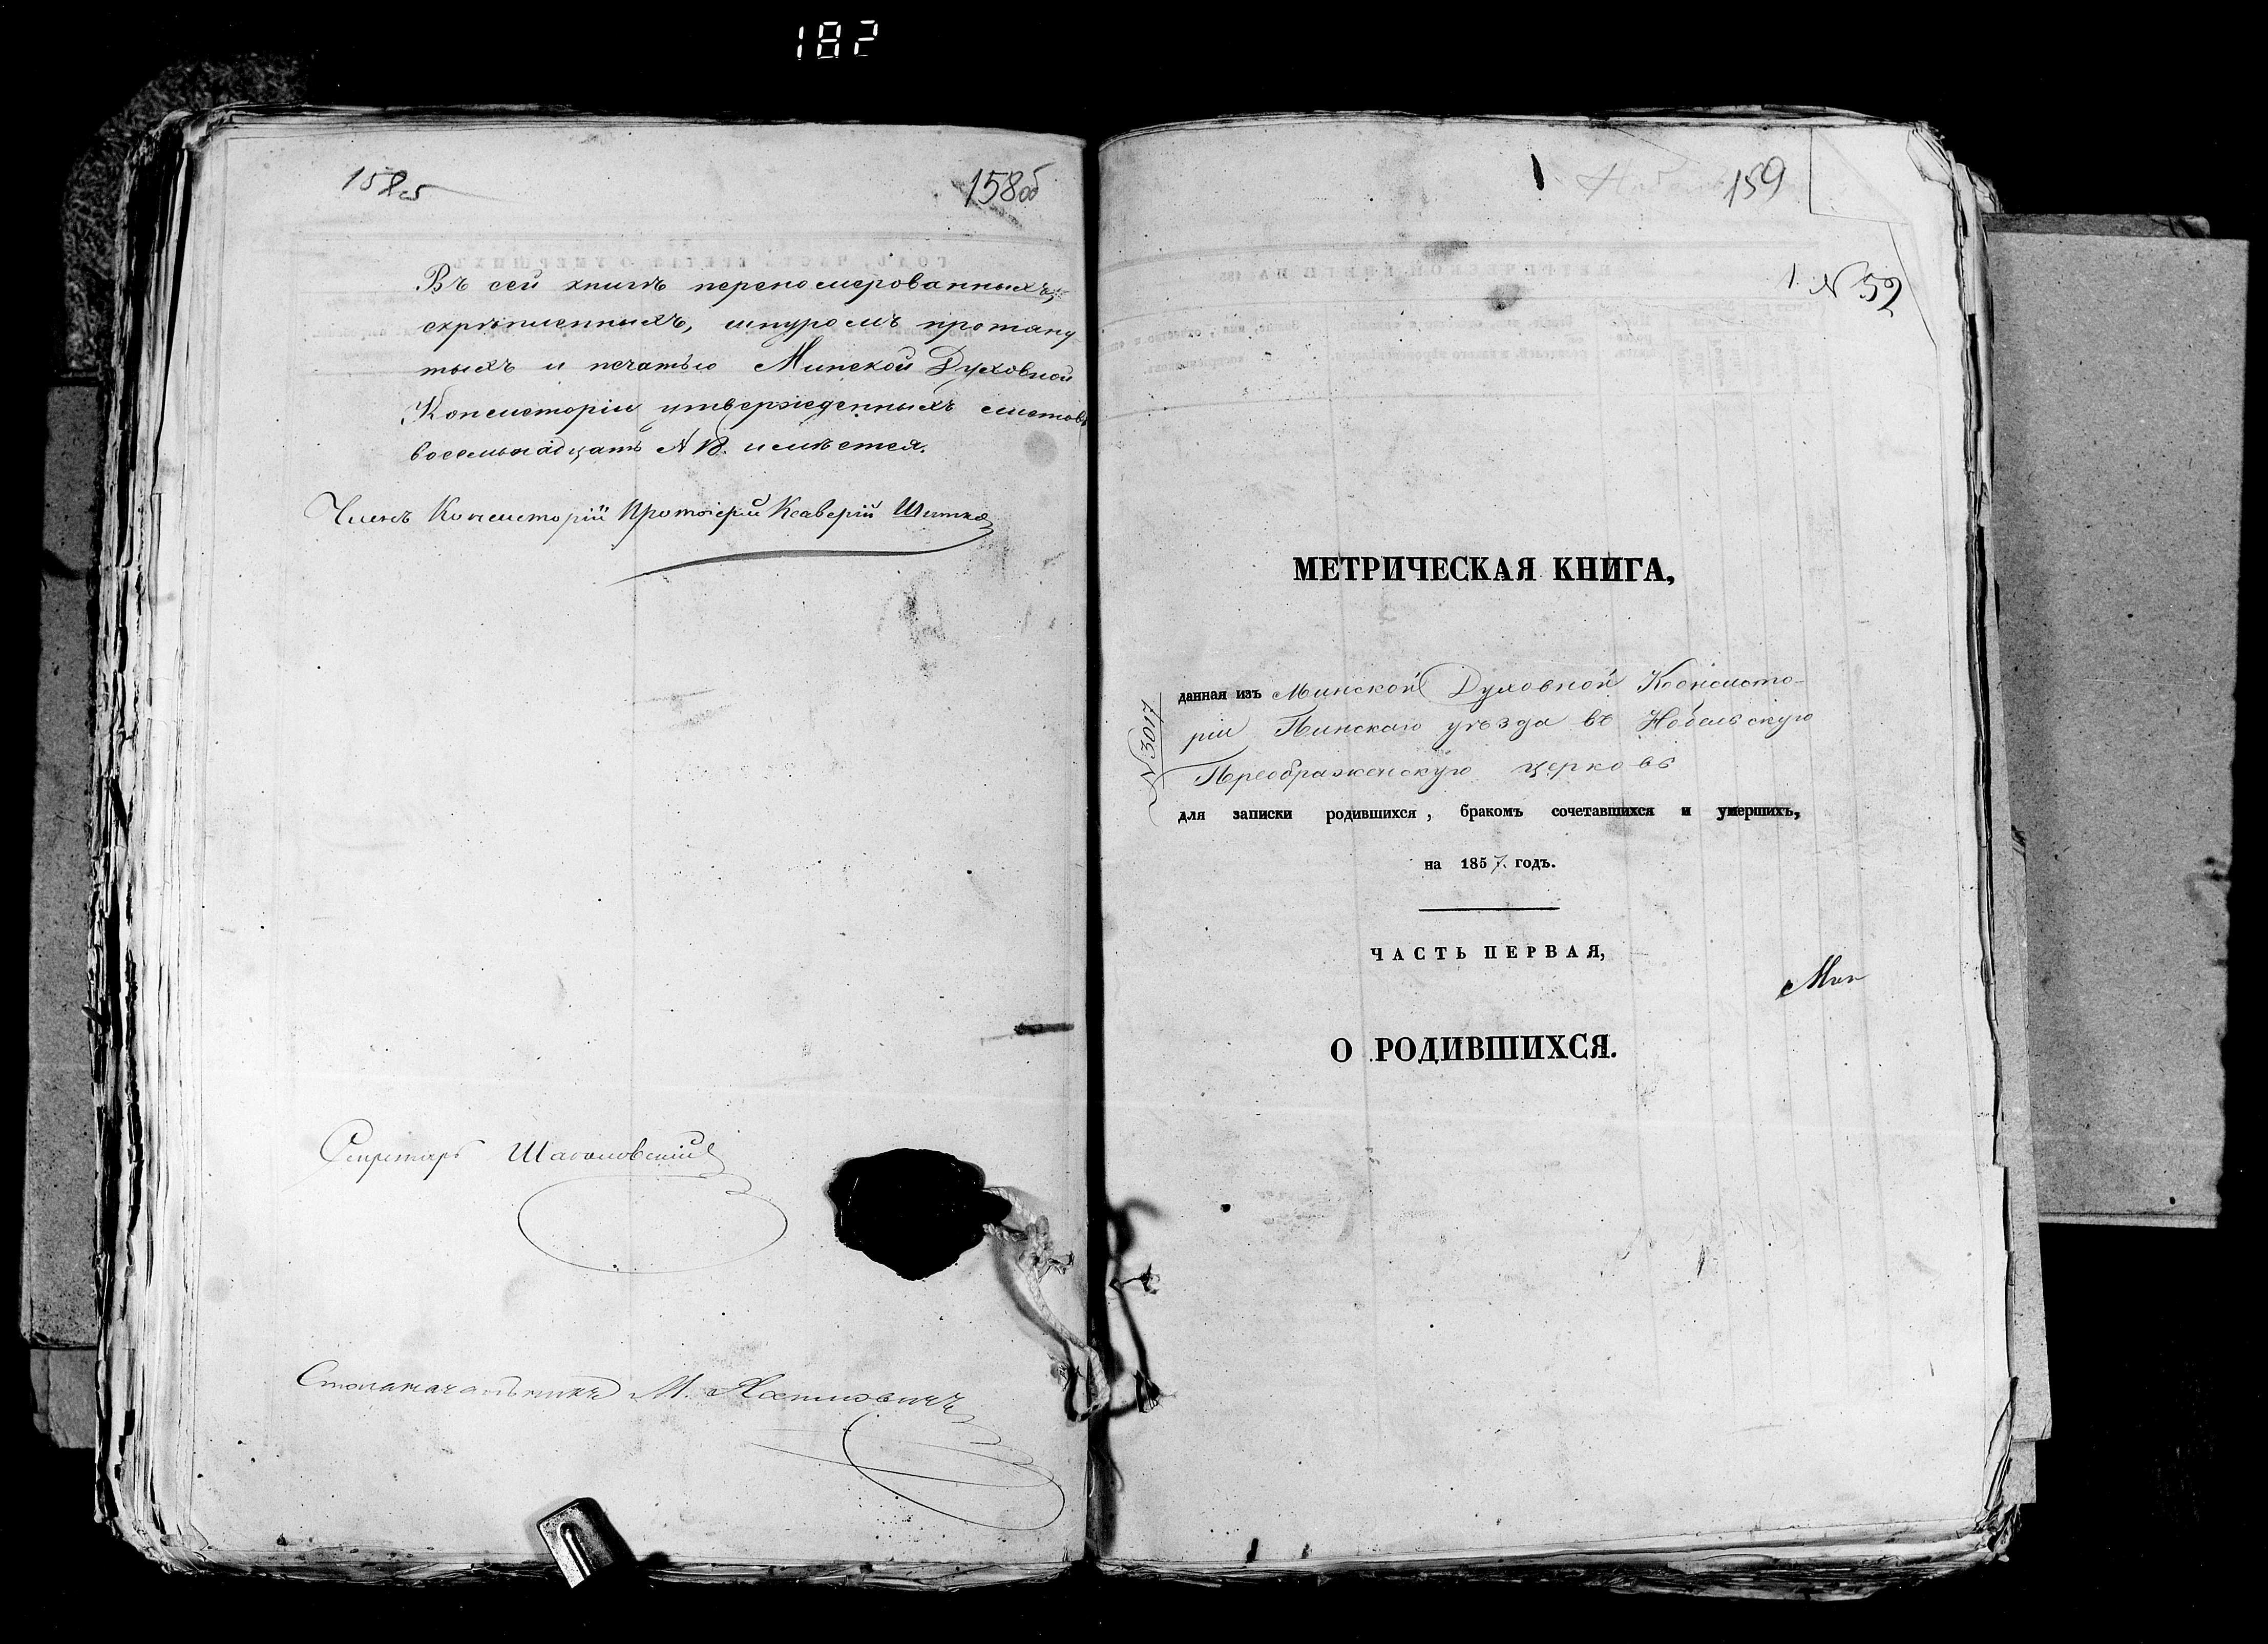 182
158об
Въ сей книгѣ перенолмерованныхъ,
скрѣпленныхъ, шнуромъ протяну
тыхъ и печатью Минской Духовной
Консисторіи утвержденныхъ листовъ
восемьнадцать № 18. имѣется.
Членъ Консисторіи Протоіерей Ксаверій
Секретарь
Столоначальникъ М.
159
1. N 52
МЕТРИЧЕСКАЯ КНИГА,
N 3017
данная изъ Минской Духовной Консисто-
ріи Пинскаго уѣзда въ Нобельскую
Преображенскую церковь
для записки родившихся, бракомъ сочетавшихся и умершихъ,
на 1857. годъ.
ЧАСТЬ ПЕРВАЯ,
Мин
О РОДИВШИХСЯ.